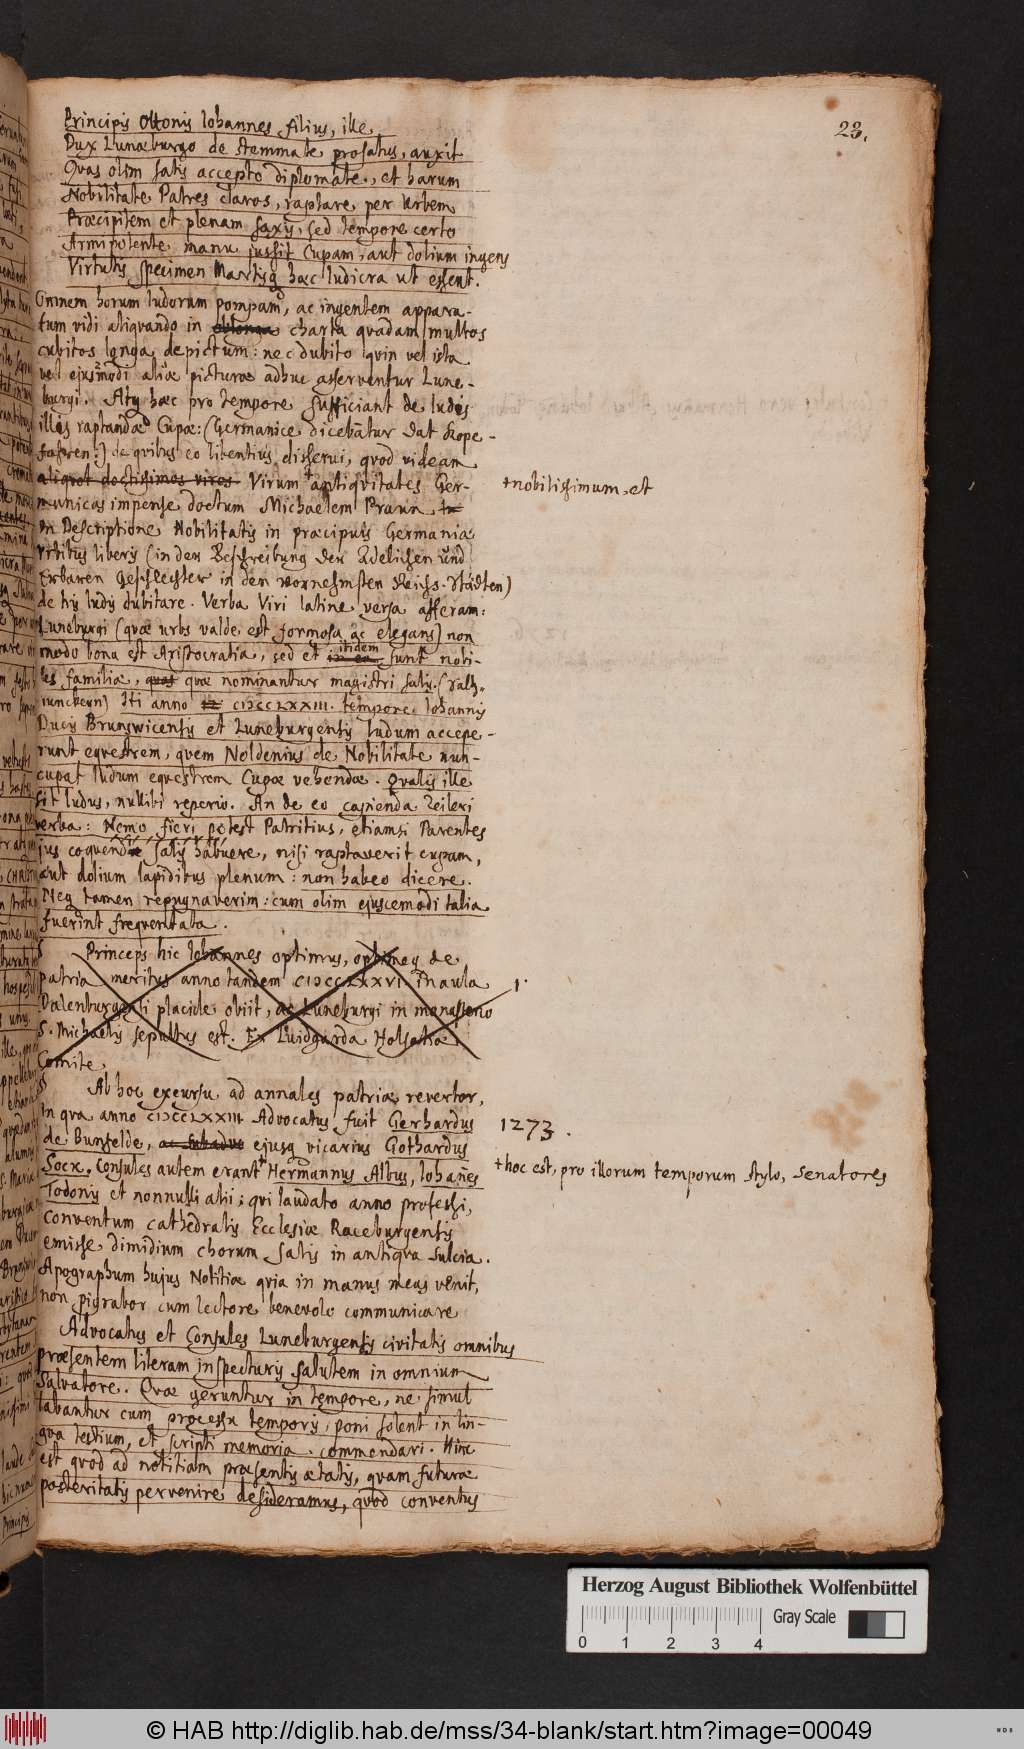 23.
Principis Ottonis Iohannes filius, ille
Dux Lunæburgo de stemmate prosatus, auxit
Quas olim satis accepto diplomate, et harum
Nobilitate Patres claros, raptare per Urbem
Præcipitem et plenam saxis, sed tempore certo
Armipotente manu jussit Cupam, aut dolium ingens
Virtutis specimen Martisq hæc ludicra ut essent.
Omnem horum ludorum pompam, ac ingentem appara-
tum vidi aliquando in oblonga charta quadam multos
cubitos longa depictum: nec dubito quin vel ista
vel ejusmodi aliæ picturæ adhuc asserventur Lune-
burgi. Atq hæc pro tempore sufficiant de ludis
illis raptandæ Cupæ: (Germanice dicebatur dat Kope-
fahren:) de quibus eo libentius disserui, quod videam
aliquot doctissimos viros Virum + antiquitates Ger-
manicas impense doctum Michaelem Praun in
+nobilissimum, et
In Descriptione Nobilitatis in præcipuis Germaniæ
Urbibus liberis (in der Beschreibung der Adelichen und
Erbaren Geschlechter in den vornehmsten Reichs-Städten)
de his ludis dubitare. Verba Viri latine versa afferam:
Luneburgi (quæ urbs valde est formosa ac elegans) non
modo bona est Aristocratia, sed et in ea itidem sunt nobi-
les familiæ, quas quæ nominantur magistri salis. (Saltz-
iunckern) Iti anno CIƆCCLXXIII. tempore Iohannis
Ducis Brunswicensis et Luneburgensis ludum accepe-
runt equestrem, quem Noldenius de Nobilitate nun-
cupat ludum equestrem Cupæ vehendæ. Qualis ille
sit ludus, nullibi reperio. An de eo capienda Zeileri
verba: Nemo fieri potest Patritius, etiamsi Parentes
jus coquendi salis habuere, nisi raptaverit cupam,
aut dolium lapidibus plenum: non habeo dicere.
Neq tamen repugnaverim: cum olim ejuscemodi talia
fuerint frequentata.
Princeps hic Iohannes optimus, optimeq de
patria meritus anno tandem CIƆCCLXXVI in aula
Dalenburgensi placide obiit, ac Luneburgi in monasterio
S. Michaelis sepultus est. Ex Luidgarda Holsatiæ
Comite.
1.
Ab hoc excursu ad annales patriæ revertor,
In qua anno CIƆCCLXXIII Advocatus fuit Gerhardus
1273.
de Bunfelde, ac subadvo ejusq vicarius Gothardus
Sock. Consules autem erant + Hermannus Albus, Iohanes
+hoc est, pro illorum temporum stylo, Senatores
Todonis et nonnulli alii; qui laudato anno professi,
Conventum cathedralis Ecclesiæ Raceburgensis
emisse dimidium chorum salis in antiqua sulcia.
Apographum hujus Notitiæ quia in manus meas venit,
non pigrabor cum lectore benevolo communicare
Advocatus et Consules Luneburgensis civitatis omnibus
præsentem literam inspecturis salutem in omnium
Salvatore. Quæ geruntur in tempore, ne simul
labantur cum processu temporis, poni solent in lin-
gua testium, et scripti memoria commendari. Hinc
est quod ad notitiam præsentis ætatis, quam futuræ
posteritatis pervenire desideramus, quod conventus
Herzog August Bibliothek Wolfenbüttel
Gray Scale
0 1 2 3 4
© HAB http://diglib.hab.de/mss/34-blank/start.htm?image=00049